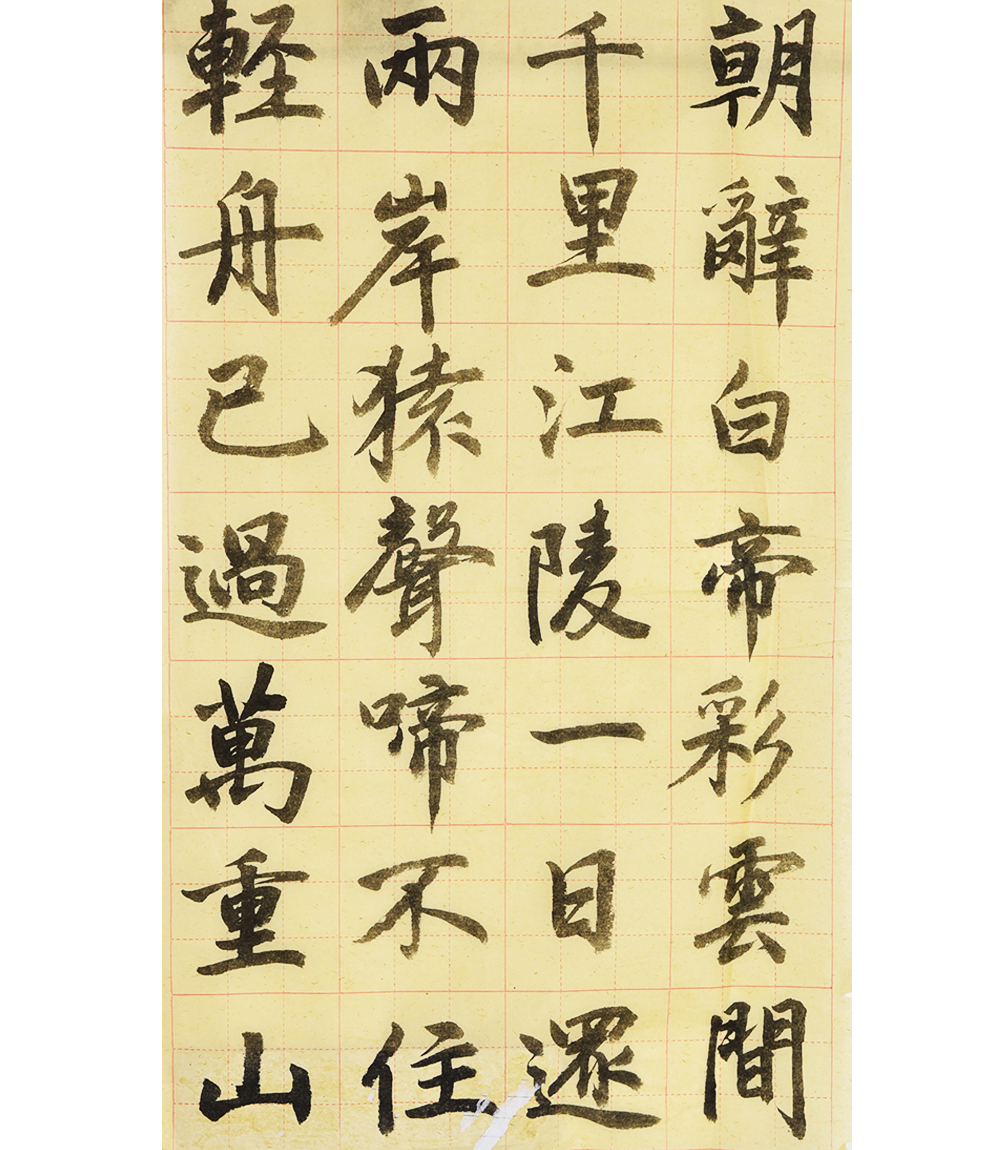 朝辭白帝彩雲間
千里江陵一日還
兩岸猿聲啼不住
軽舟已過萬重山